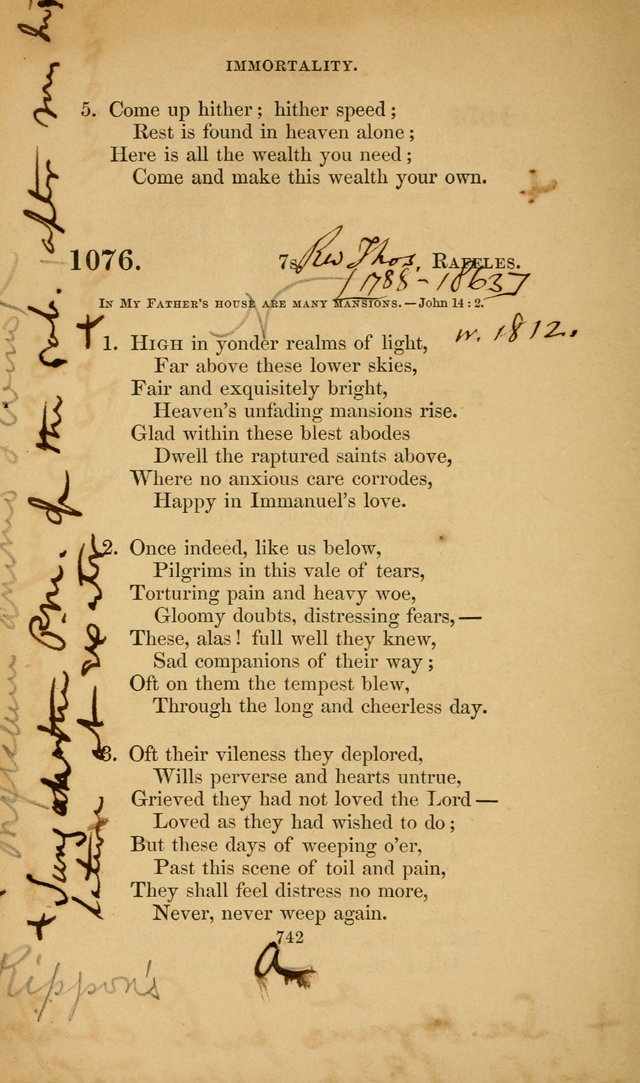 IMMORTALITY.
5. Come up hither; hither speed;
Rest is found in heaven alone;
Here is all the wealth you need;
Come and make this wealth your own.
1076. 7s. Rev Thos. RAFFLES.
[1788-1863]
IN MY FATHER'S HOUSE ARE MANY MANSIONS.—John 14:2.
w. 1812.
1. HIGH in yonder realms of light,
Far above these lower skies,
Fair and exquisitely bright,
Heaven's unfading mansions rise.
Glad within these blest abodes
Dwell the raptured saints above,
Where no anxious care corrodes,
Happy in Immanuel's love.
2. Once indeed, like us below,
Pilgrims in this vale of tears,
Torturing pain and heavy woe,
Gloomy doubts, distressing fears,—
These, alas! full well they knew,
Sad companions of their way;
Oft on them the tempest blew,
Through the long and cheerless day.
3. Oft their vileness they deplored,
Wills perverse and hearts untrue,
Grieved they had not loved the Lord—
Loved as they had wished to do;
But these days of weeping o'er,
Past this scene of toil and pain,
They shall feel distress no more,
Never, never weep again.
742
a
+ Sung P.M. of the sab. after my
at
Rippon's